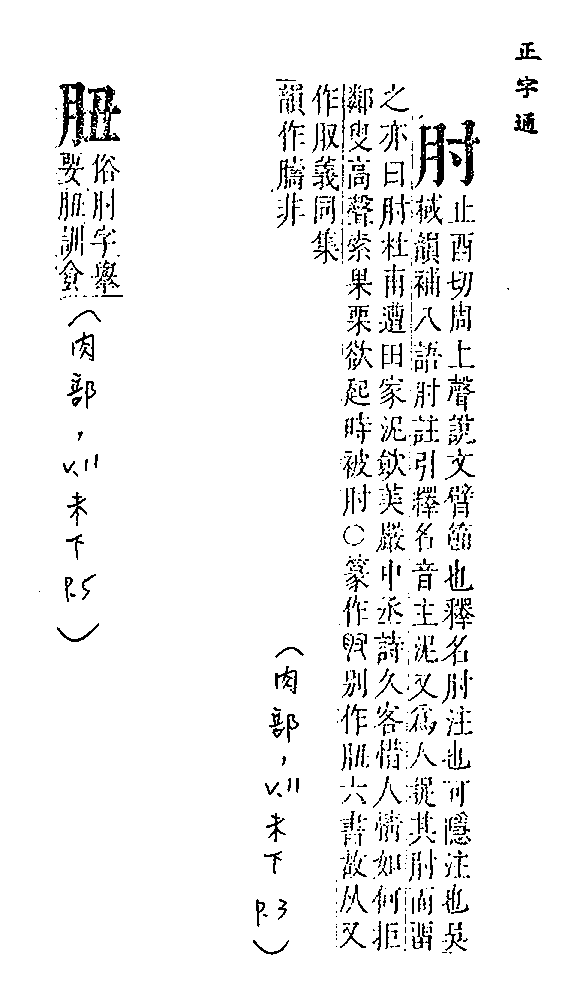 正字通
肘
止酉切周上聲說文臂節也釋名肘注也可隱注也吳
棫韻補入語肘註引釋名音主泥又爲人捉其肘而留
之亦曰肘杜甫遭田家泥飲美嚴中丞詩久客惜人情如何拒
鄰叟高聲索果栗欲起時被肘○篆作別作䏔六書故从又
作義同集
韻作非
（肉部，v.11 未下 P.3）
䏔
俗肘字舉
要䏔訓食
（肉部，v.11 未下 P.5）